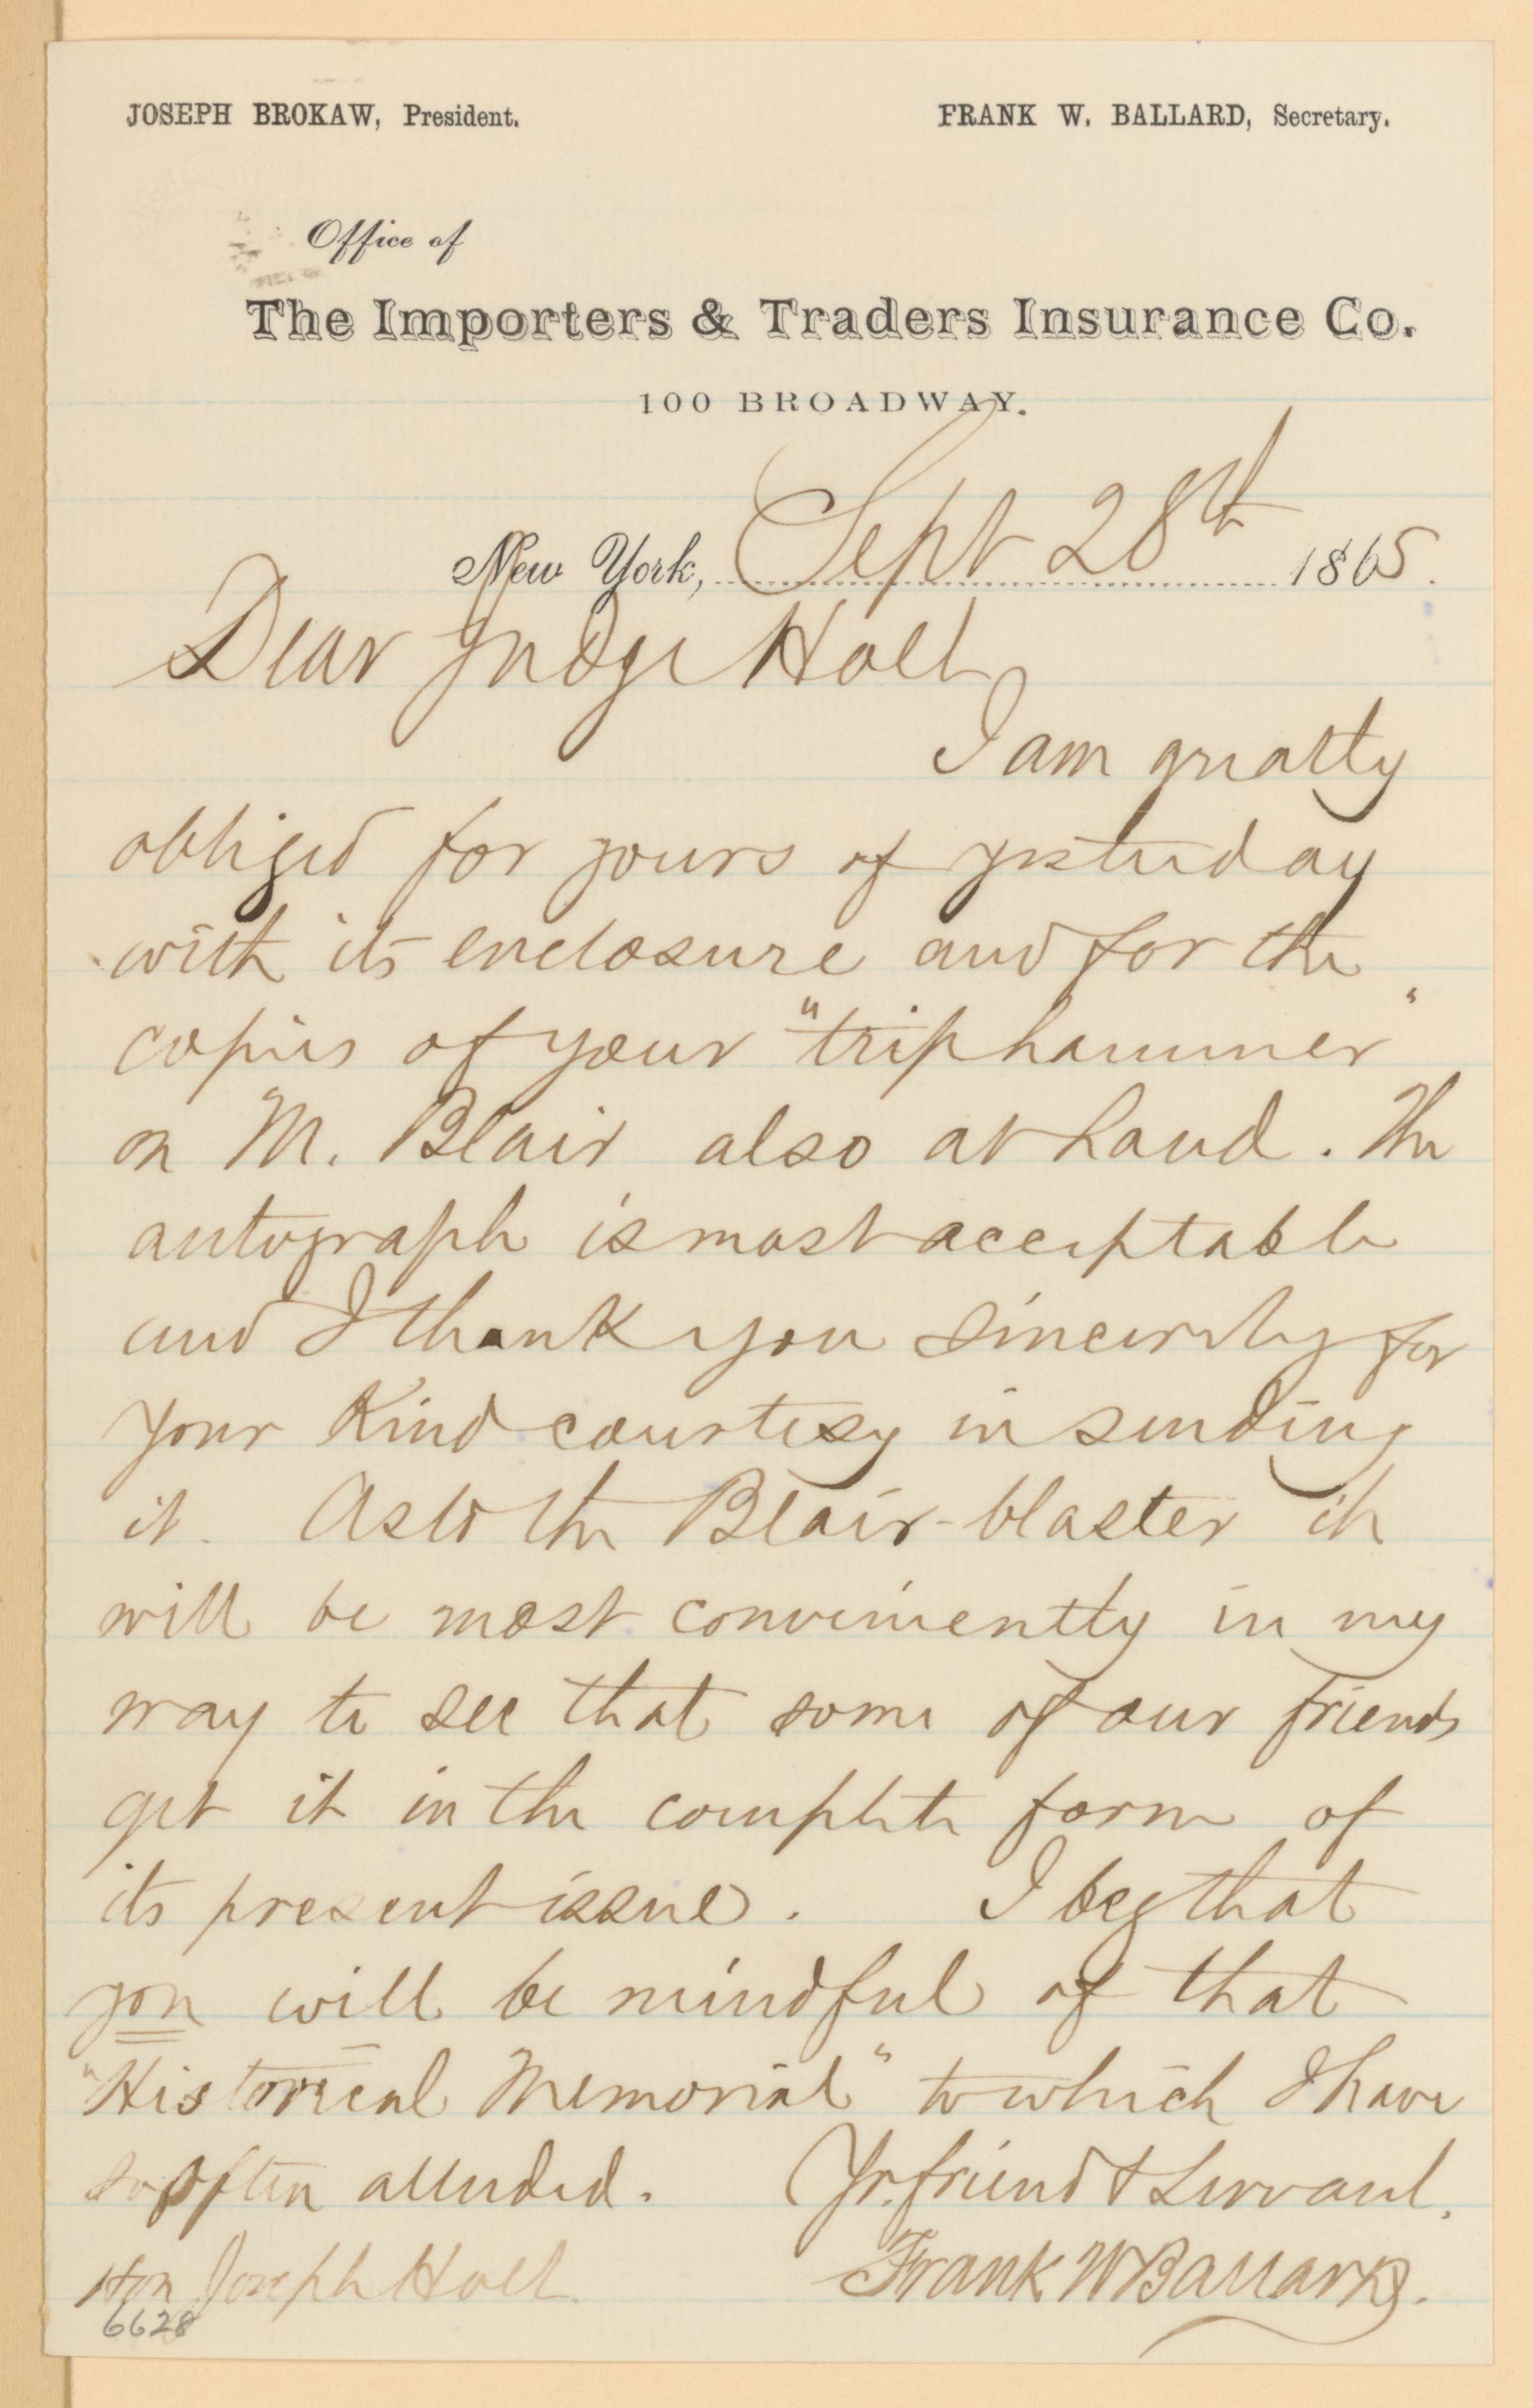 JOSEPH BROKAW, President. FRANK W. BALLARD, Secretary.
Office of
The Importers & Traders Insurance Co.
100 BROADWAY.
New York, Sept 28th 1865.
Dear Judge Holt
I am greatly
obliged for yours of yesterday
with its enclosure and for the
copies of your "trip hammer"
on M. Blair also at hand. The
autograph is most acceptable
and I thank you sincerely for
your kind courtesy in sending
it. As to the Blair-blaster it
will be most conveniently in my
way to see that some of our friends
get it in the complete form of
its present issue. I beg that
you will be mindful of that
"Historical Memorial" to which I have
so often alluded. Yr. friend & Servant.
Hon Joseph Holt. Frank W Ballard.
6628